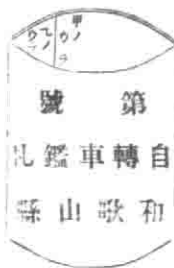 甲ノ
第號
自轉車鑑札
和歌山縣